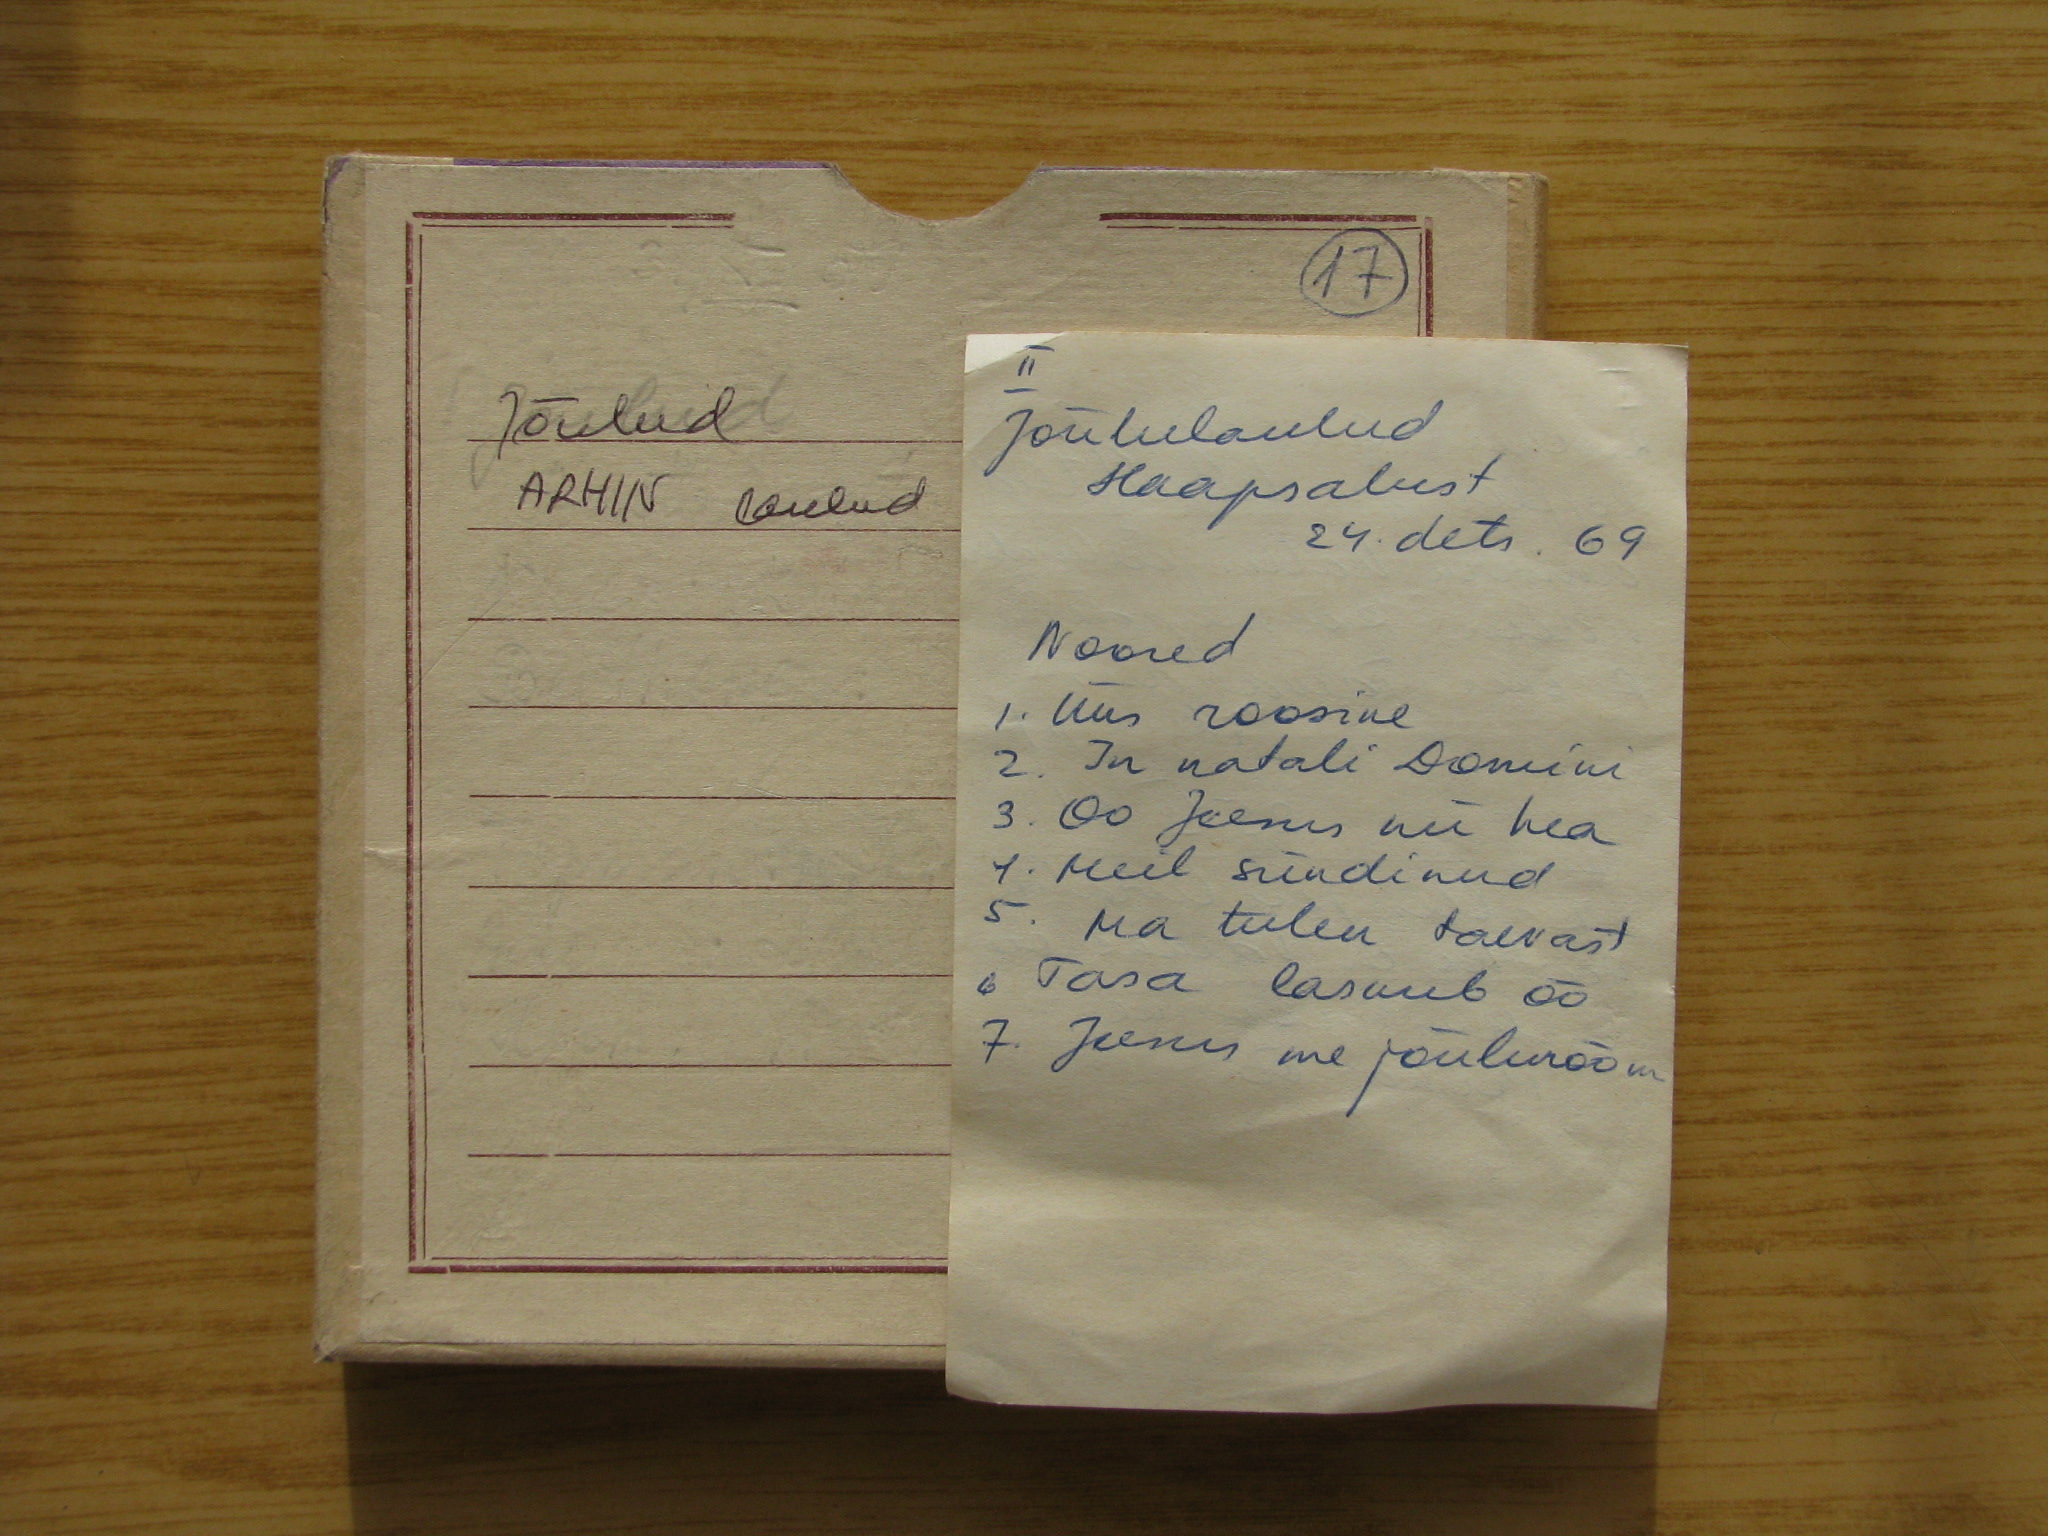 17
Jõulud
ARHIIV laulud
II
Jõululaulud
Haapsalust
24. dets. 69
Noored
1. Üks roosike
2. In natali Domini
3. Oo Jeesus nii hea
4. Meil sündinud
5. Ma tulen taevast
6 Tasa lasknub öö
7. Jeesus me jõulurõõm